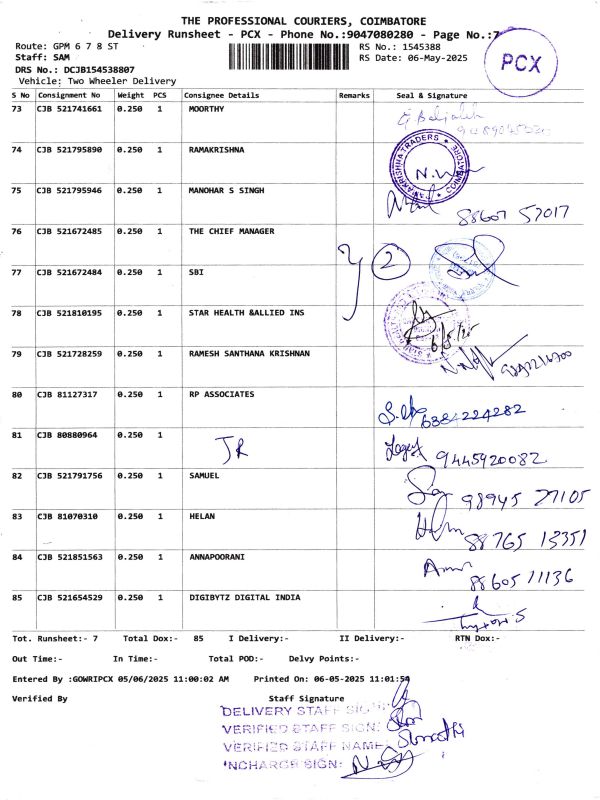 THE PROFESSIONAL COURIERS, COIMBATORE
Delivery Runsheet - PCX - Phone No.:9047080280 - Page No.:7
Route: GPM 6 7 8 ST RS No.: 1545388
Staff: SAM RS Date: 06-May-2025
DRS No.: DCJB154538807
Vehicle: Two Wheeler Delivery
PCX
S No Consignment No Weight PCS Consignee Details Remarks Seal & Signature
73 CJB 521741661 0.250 1 MOORTHY
74 CJB 521795890 0.250 1 RAMAKRISHNA
RAMAKRISHNA TRADERS
75 CJB 521795946 0.250 1 MANOHAR S SINGH
88607 57017
76 CJB 521672485 0.250 1 THE CHIEF MANAGER
2
77 CJB 521672484 0.250 1 SBI
78 CJB 521810195 0.250 1 STAR HEALTH &ALLIED INS
6/5/25
79 CJB 521728259 0.250 1 RAMESH SANTHANA KRISHNAN
80 CJB 81127317 0.250 1 RP ASSOCIATES
6384224282
81 CJB 80880964 0.250 1 JR
9445920082
82 CJB 521791756 0.250 1 SAMUEL
98945 77105
83 CJB 81070310 0.250 1 HELAN
88765 13351
84 CJB 521851563 0.250 1 ANNAPOORANI
88605 11136
85 CJB 521654529 0.250 1 DIGIBYTZ DIGITAL INDIA
Tot. Runsheet:- 7 Total Dox:- 85 I Delivery:- II Delivery:- RTN Dox:-
Out Time:- In Time:- Total POD:- Delvy Points:-
Entered By :GOWRIPCX 05/06/2025 11:00:02 AM Printed On: 06-05-2025 11:01:54
Verified By Staff Signature
DELIVERY STAFF SIGN:
VERIFIED STAFF SIGN:
VERIFIED STAFF NAME:
INCHARGE SIGN: